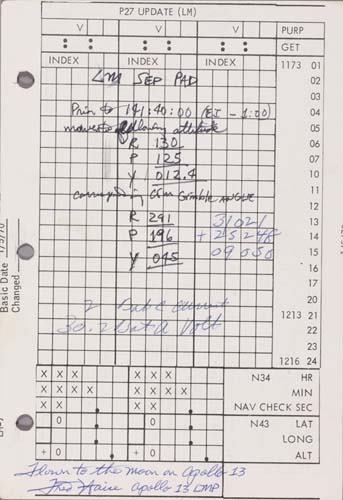 P27 UPDATE (LM)
PURP
: : : : : : GET
INDEX INDEX INDEX 1173 01
LM SEP PAD 02
03
Prior to 141:40:00 (EI - 1:00) 04
maneuver to following attitude 06
R 130 07
P 125
Y 012.4 10
corresponding CSM Gimble ANGLE 11
12
R 291 31021 13
P 196 + 25248 14
Y 045 09050 15
16
17
20
2 Bat C current 1213 21
30.2 Bat A Volt 22
23
1216 24
X X X X X X N34 HR
X X X X X X X X MIN
X X X X NAV CHECK SEC
0 0 N43 LAT
LONG
+ 0 + 0 ALT
Flown to the moon on Apollo 13
Fred Haise Apollo 13 LMP
Basic Date 1/5/70
Changed